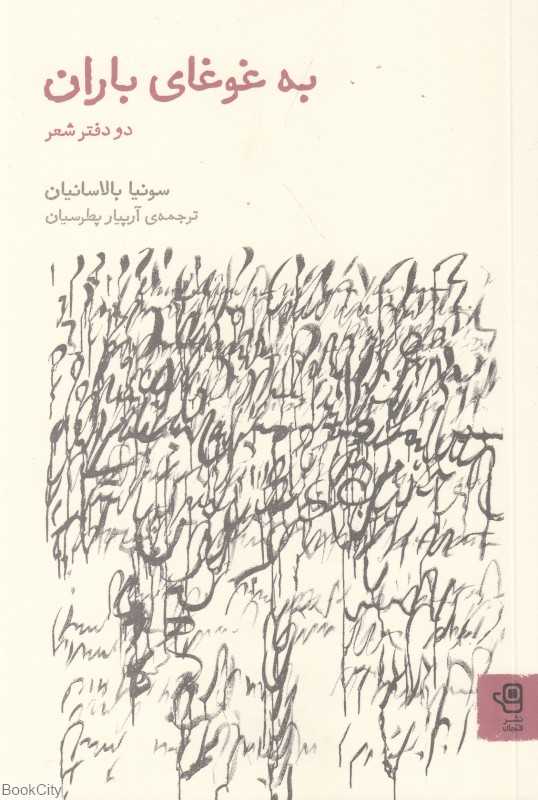 به غوغای باران
دو دفتر شعر
سونیا بالاسانیان
ترجمه‌ی آرپیار پطرسیان
نشر
BookCity